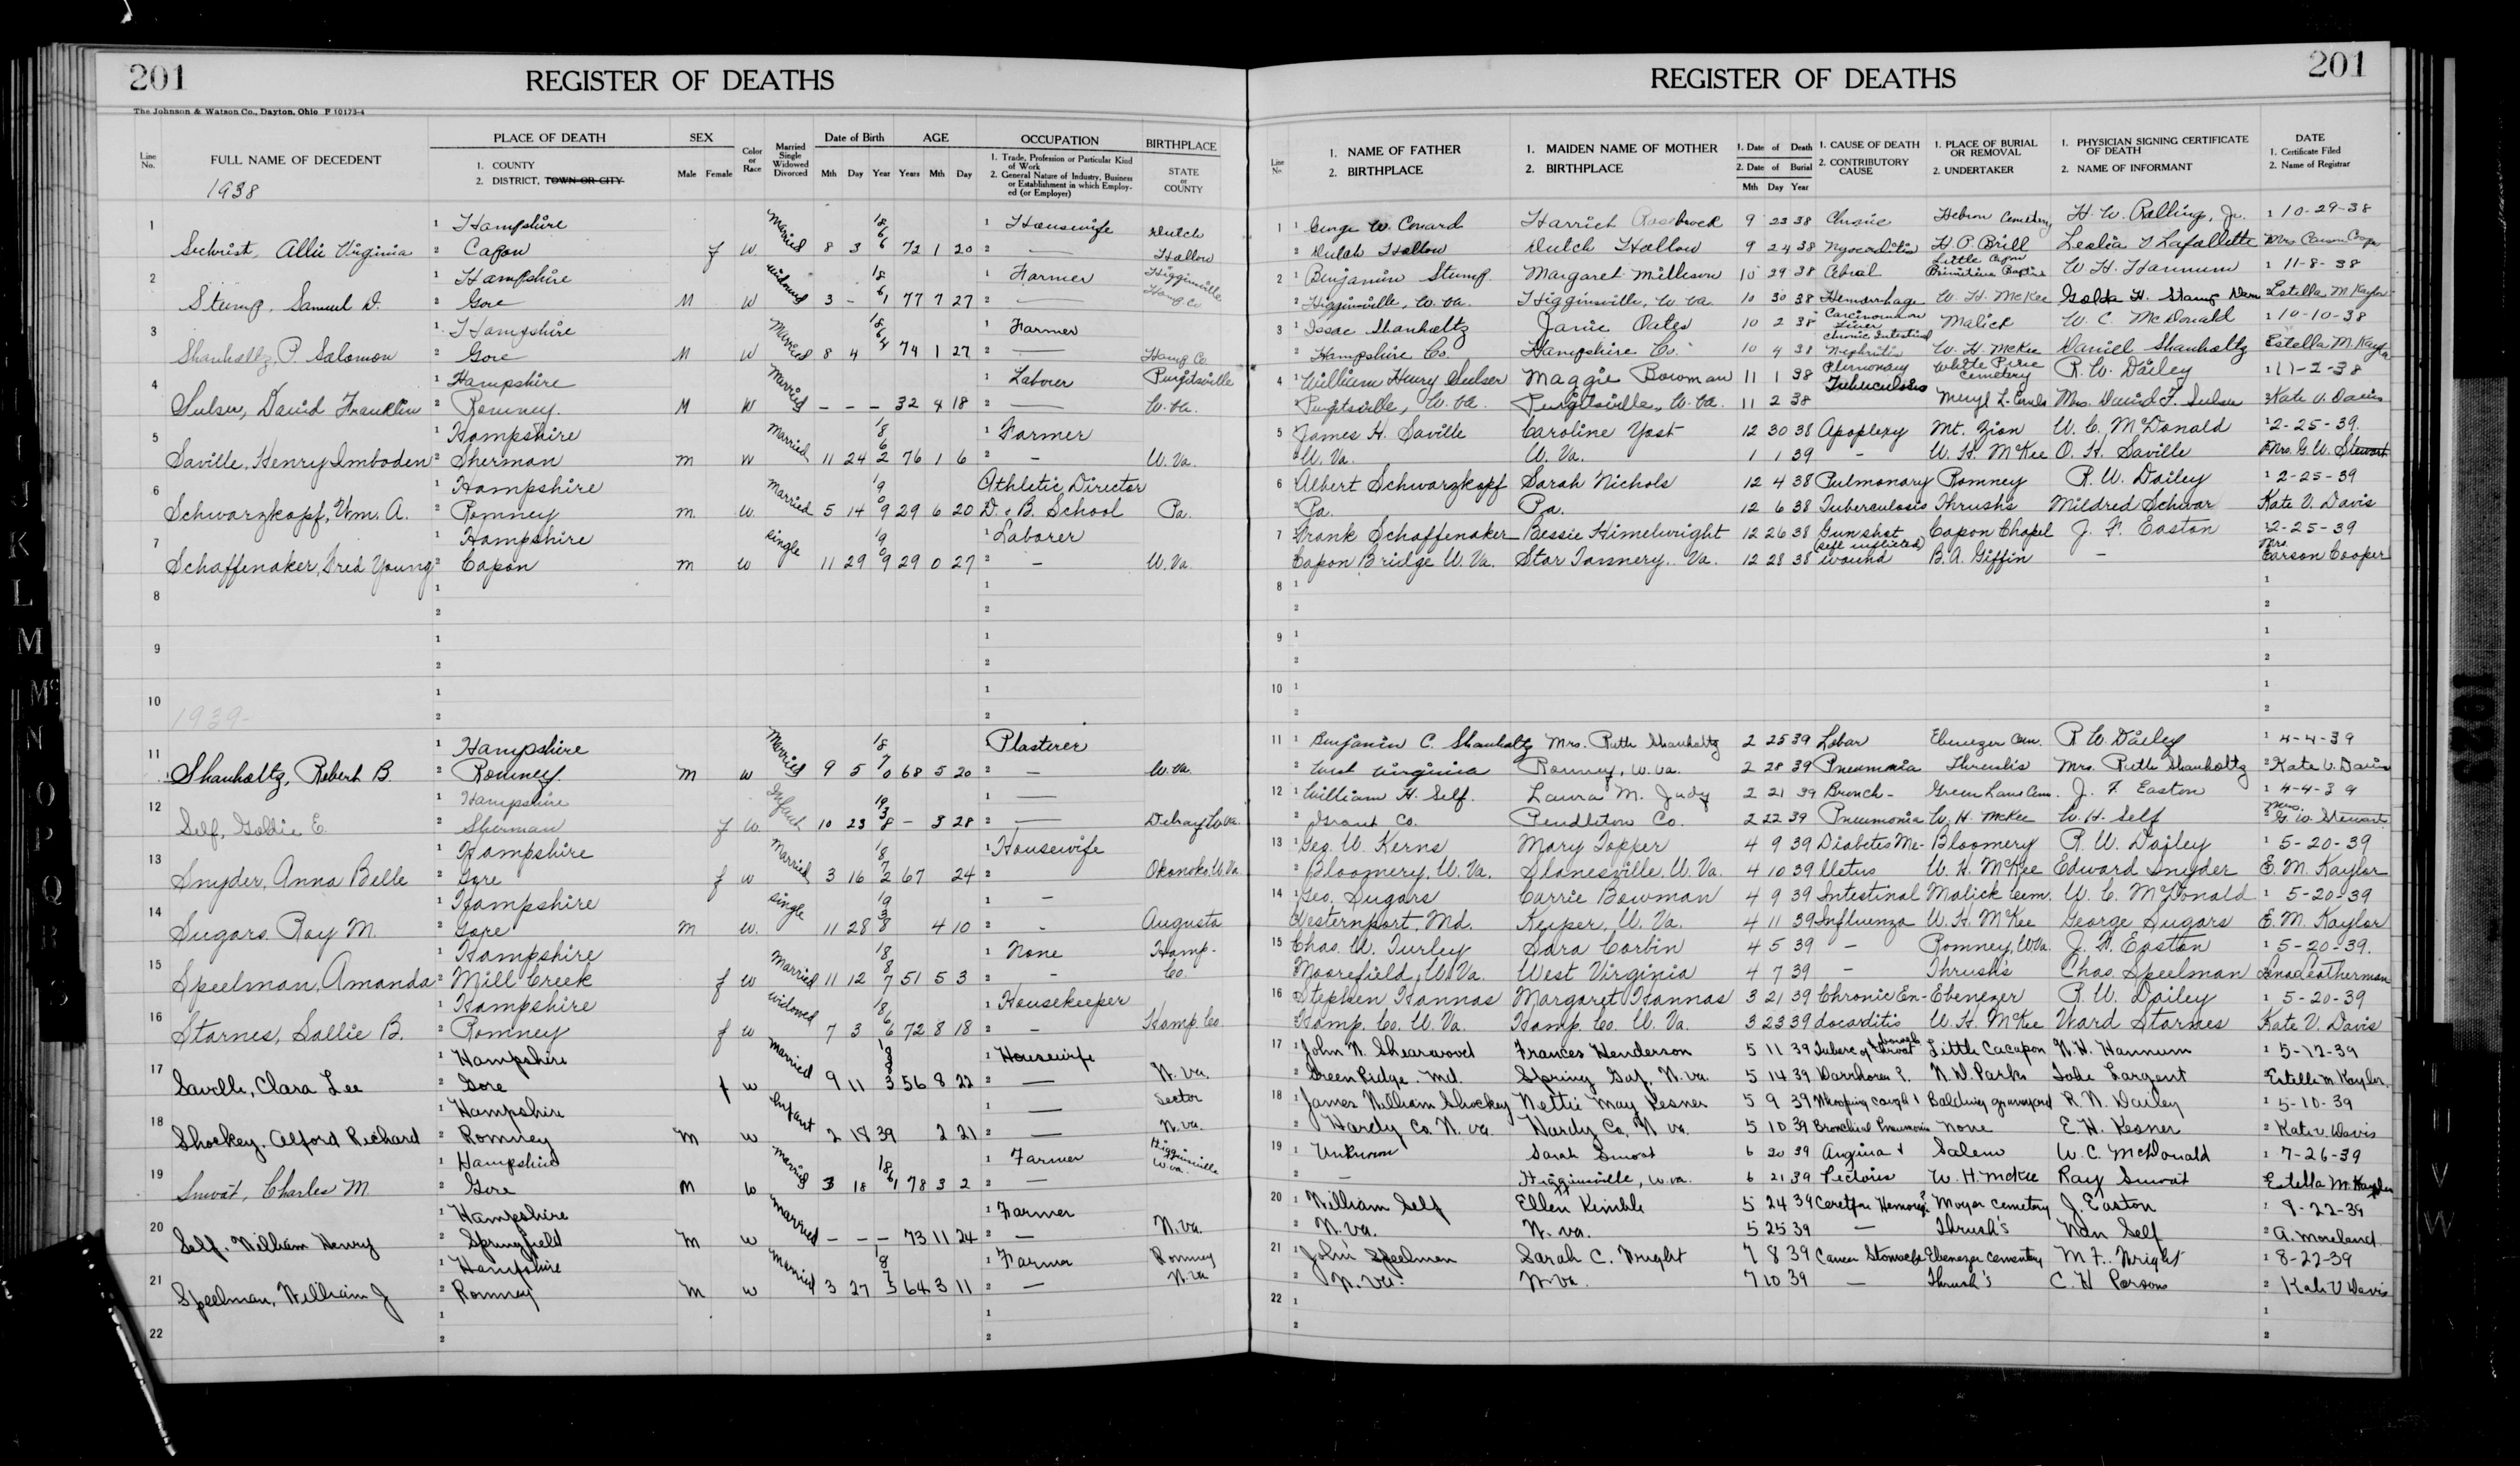 201 REGISTER OF DEATHS
The Johnson & Watson Co., Dayton, Ohio F 10173-4
Line No. FULL NAME OF DECEDENT PLACE OF DEATH 1. COUNTY 2. DISTRICT, TOWN OR CITY SEX Male Female Color or Race Married Single Widowed Divorced Date of Birth Mth Day Year AGE Years Mth Day OCCUPATION 1. Trade, Profession or Particular Kind of Work 2. General Nature of Industry, Business or Establishment in which Employed (or Employer) BIRTHPLACE STATE or COUNTY
1938
1 1 Hampshire Married 1 Housewife Dutch
Sechrist, Allie Virginia 2 Capon f W 8 3 1866 72 1 20 2 — Hallow
2 1 Hampshire widowed 1 Farmer Higginsville
Stump, Samuel D. 2 Gore M W 3 - 1861 77 7 27 2 — Hamp Co
3 1 Hampshire Married 1 Farmer
Shanholtz, P. Salomon 2 Gore M W 8 4 1864 74 1 27 2 — Hamp Co.
4 1 Hampshire Married 1 Laborer Purgitsville
Sulser, David Franklin 2 Romney M W - - - 32 4 18 2 — W. Va.
5 1 Hampshire Married 1 Farmer
Saville, Henry Imboden 2 Sherman m W 11 24 1862 76 1 6 2 - W. Va.
6 1 Hampshire married Athletic Director
Schwarzkopf, Wm. A. 2 Romney m. W. 5 14 1909 29 6 20 D. & B. School Pa.
7 1 Hampshire single 1 Laborer
Schaffenaker, Fred Young 2 Capon m W 11 29 1909 29 0 27 2 - W. Va.
8 1 1
2 2
9 1 1
2 2
10 1 1
1939- 2 2
11 1 Hampshire Married 1 Plasterer
Shanholtz, Robert B. 2 Romney m w 9 5 1870 68 5 20 2 — W. Va.
12 1 Hampshire Infant 1 —
Self, Goldie E. 2 Sherman f W. 10 23 1938 - 3 28 2 — Delray W. Va.
13 1 Hampshire Married 1 Housewife
Snyder, Anna Belle 2 Gore f w 3 16 1872 67 24 2 Okonoko, W. Va.
14 1 Hampshire single 1 -
Sugars Roy M. 2 Gore m w. 11 28 1938 4 10 2 - Augusta
15 1 Hampshire Married 1 None Hamp.
Speelman, Amanda 2 Mill Creek f w 11 12 1887 51 5 3 2 - Co.
16 1 Hampshire widowed 1 Housekeeper
Starnes, Sallie B. 2 Romney f w 7 3 1866 72 8 18 2 - Hamp. Co.
17 1 Hampshire married 1 Housewife
Saville, Clara Lee 2 Gore f w 9 11 1883 56 8 22 2 — W. Va.
18 1 Hampshire Infant 1 — Sector
Shockey, Alford Richard 2 Romney M w 2 18 39 2 21 2 — W. Va.
19 1 Hampshire married 1 Farmer Higginsville W. Va.
Smoot, Charles M. 2 Gore M W 3 18 1861 78 3 2 2 —
20 1 Hampshire married 1 Farmer
Self, William Henry 2 Springfield M w - - - 73 11 24 2 — W. Va.
21 1 Hampshire married 1 Farmer Romney
Speelman, William J 2 Romney M w 3 27 1875 64 3 11 2 — W. Va
22 1 1
2 2
REGISTER OF DEATHS 201
Line No. 1. NAME OF FATHER 2. BIRTHPLACE 1. MAIDEN NAME OF MOTHER 2. BIRTHPLACE 1. Date of Death 2. Date of Burial Mth Day Year 1. CAUSE OF DEATH 2. CONTRIBUTORY CAUSE 1. PLACE OF BURIAL OR REMOVAL 2. UNDERTAKER 1. PHYSICIAN SIGNING CERTIFICATE OF DEATH 2. NAME OF INFORMANT DATE 1. Certificate Filed 2. Name of Registrar
1 1 George W. Harriett Rosebrock 9 23 38 Chronic Hebron Cemetery H. W. Jr. 1 10-29-38
2 Dutch Hallow Dutch Hallow 9 24 38 Myocarditis H. P. Brill Leslie Lafollette Mrs Carson Cooper
2 1 Benjamin Stump Margaret Milleson 10 29 38 Little Capon Primitive Baptist W H. Hannum 1 11-8-38
2 Higginsville, W. Va. Higginsville, W. Va. 10 30 38 Hemorrhage W. H. McKee Golda H. Stump 2 Estella M Kaylor
3 1 Isaac Shanholtz Janie Oates 10 2 38 Carcinoma on Liver Malick W. C. McDonald 1 10-10-38
2 Hampshire Co. Hampshire Co. 10 4 38 Chronic Intestinal Nephritis W. H. McKee Daniel Shanholtz Estella M Kaylor
4 1 William Henry Sulser Maggie Bowman 11 1 38 Pulmonary White Pine Cemetery R. W. Dailey 1 11-2-38
2 Purgitsville, W. Va. Purgitsville, W. Va. 11 2 38 Tuberculosis Meryl L. Mrs. David F. Sulser 2 Kate V. Davis
5 1 James H. Saville Caroline Yost 12 30 38 Apoplexy Mt. Zion W. C. McDonald 1 2-25-39.
2 W. Va. W. Va. 1 1 39 - W. H. McKee O. H. Saville 2 Mrs. G. W. Stewart
6 Albert Schwarzkopf Sarah Nichols 12 4 38 Pulmonary Romney R. W. Dailey 1 2-25-39
Pa. Pa. 12 6 38 Tuberculosis Thrush's Mildred Schwar Kate V. Davis
7 Frank Schaffenaker Bessie Himelwright 12 26 38 Gun shot Capon Chapel J. F. Easton 1 2-25-39
Capon Bridge W. Va. Star Tannery. Va. 12 28 38 (self inflicted) wound B. A. Giffin - Mrs. Carson Cooper
8 1 1
2 2
9 1 1
2 2
10 1 1
2 2
11 1 Benjamin C. Shanholtz Mrs. Ruth Shanholtz 2 25 39 Lobar Ebenezer Cem. R W Dailey 1 4-4-39
2 West Virginia Romney, W. Va. 2 28 39 Pneumonia Thrush's Mrs. Ruth Shanholtz 2 Kate V. Davis
12 1 William H. Self. Laura M. Judy 2 21 39 Bronch- Green Lane Cem. J. F. Easton 1 4-4-39
2 Grant Co. Pendleton Co. 2 22 39 Pneumonia W. H. McKee W. H. Self 2 Mrs. G. W. Stewart
13 1 Geo. W. Kerns Mary Topper 4 9 39 Diabetes Me- Bloomery R. W. Dailey 1 5-20-39
2 Bloomery, W. Va. Slanesville, W. Va. 4 10 39 lletus W. H. McKee Edward Snyder E. M. Kaylor
14 1 Geo. Sugars Carrie Bowman 4 9 39 Intestinal Malick Cem. W. C. McDonald 1 5-20-39
Westernport, Md. Keyser, W. Va. 4 11 39 Influenza W. H. McKee George Sugars E. M. Kaylor
15 1 Chas. W. Turley Sara Corbin 4 5 39 - Romney, W. Va. J. F. Easton 1 5-20-39.
Moorefield, W. Va. West Virginia 4 7 39 - Thrush's Chas. Speelman Leatherman
16 1 Stephen Hannas Margaret Hannas 3 21 39 Chronic En- Ebenezer R. W. Dailey 1 5-20-39
2 Hamp. Co. W. Va. Hamp. Co. W. Va. 3 23 39 docarditis W. H. McKee Ward Starnes Kate V. Davis
17 1 John W. Shearwood Frances Henderson 5 11 39 Tuberc of bowel throat Little Cacapon W. H. Hannum 1 5-12-39
2 Green Ridge. Md. Spring Gap, W. Va. 5 14 39 N. D. Parks Largent 2 Estella M Kaylor.
18 1 James William Shockey Nettie May Kesner 5 9 39 Whooping cough Baldwin graveyard R. W. Dailey 1 5-10-39
2 Hardy Co. W. Va. Hardy Co. W. Va. 5 10 39 Bronchial Pneumonia none E. H. Kesner 2 Kate V. Davis
19 1 Unknown Sarah Smoot 6 20 39 Angina Salem W. C. McDonald 1 7-26-39
2 — Higginsville, W. Va. 6 21 39 Pectoris W. H. McKee Ray Smoot Estella M Kaylor
20 1 William Self Ellen Kimble 5 24 39 Moyer cemetery J. Easton 1 8-22-39
2 W. Va. W. Va. 5 25 39 — Thrush's Nan Self 2 A. Moreland
21 1 John Speelman Sarah C. Wright 7 8 39 Cancer Stomach Ebenezer cementery M. F. Wright 1 8-22-39
2 W. Va. W. Va. 7 10 39 — Thrush's C. H Parsons 2 Kate V Davis
22 1 1
2 2
I J K L M Mc N O P Q R S
U V W